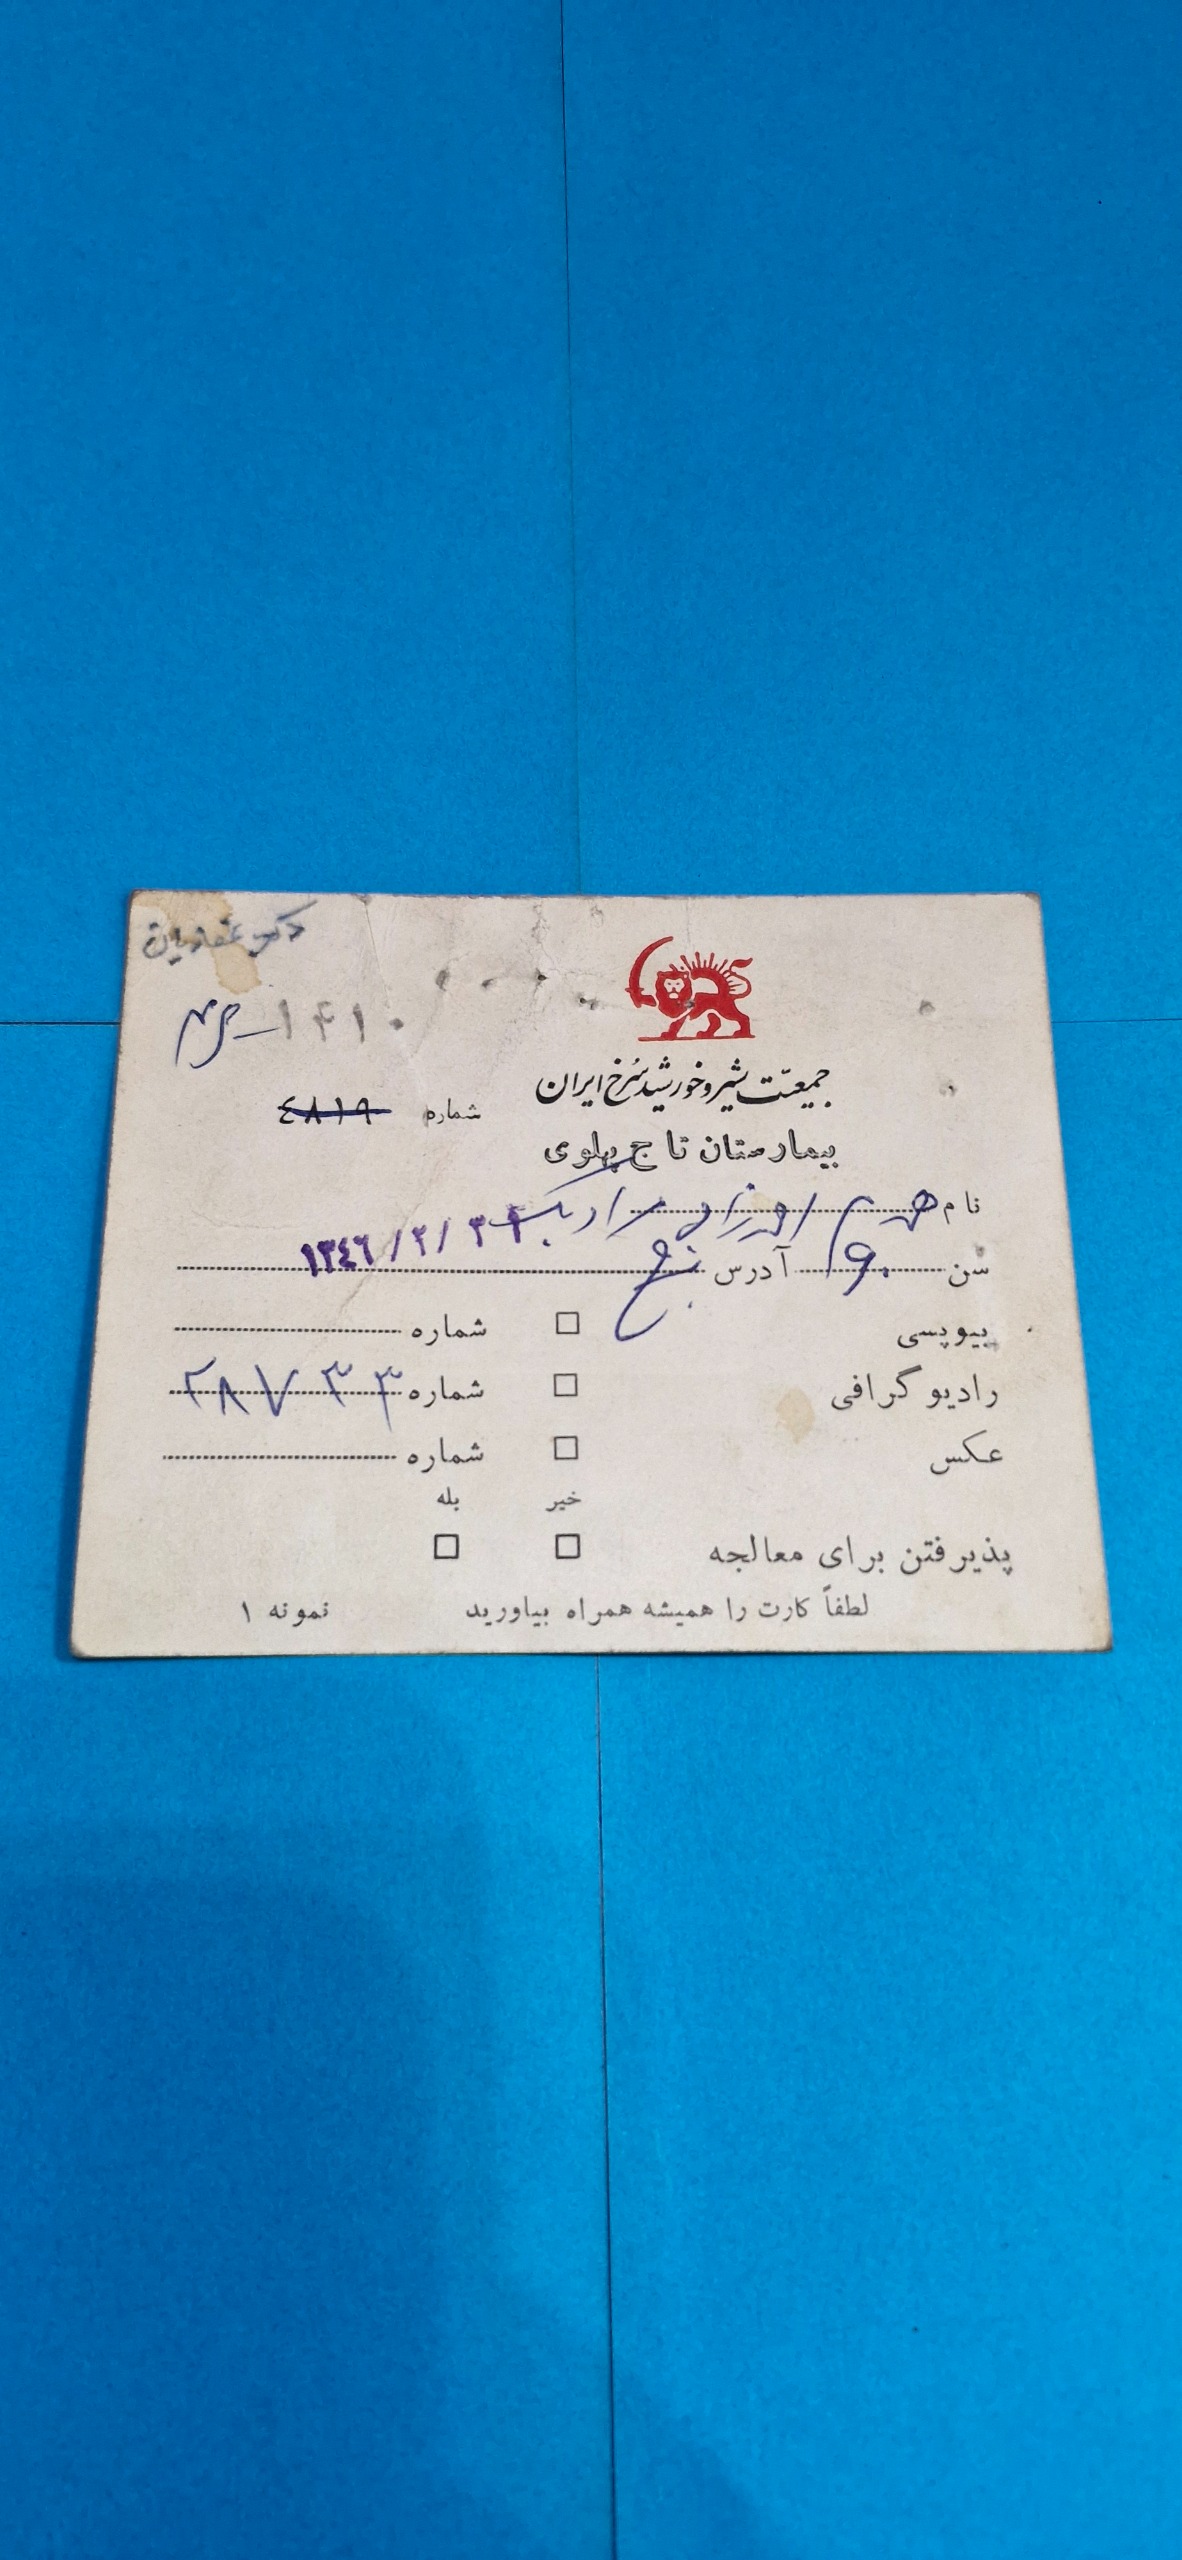 دکتر غفاریان
۱۴۱۰
جمعیّت شیر و خورشید سُرخ ایران
شماره ٤٨١٩
بیمارستان تاج پهلوی
نام
۱۳٤٦ / ۲ / ۳۱
سن ۹۰ آدرس
بیوپسی □ شماره
رادیو گرافی □ شماره ۲۸۷۳۳
عکس □ شماره
خیر بله
پذیرفتن برای معالجه □ □
لطفاً کارت را همیشه همراه بیاورید نمونه ۱